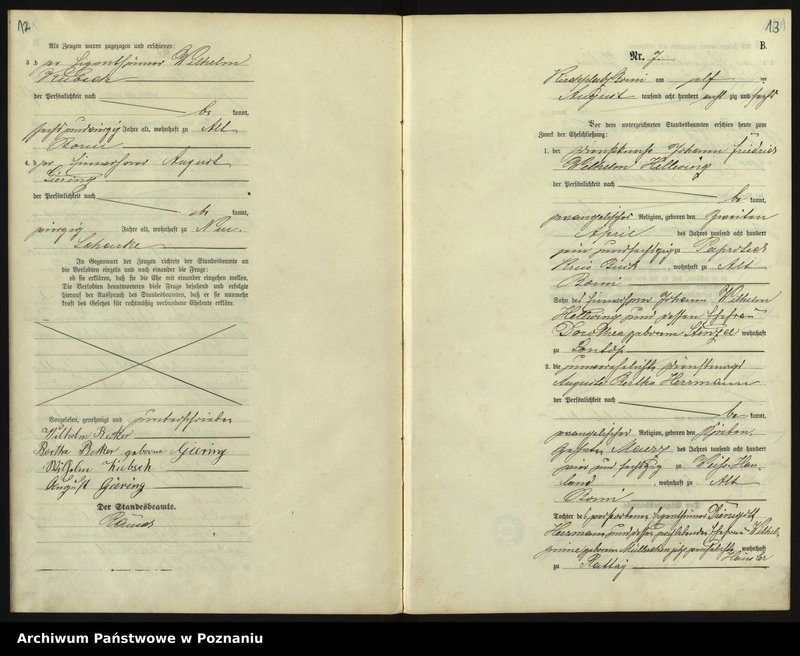 12
Als Zeugen waren zugezogen und erschienen:
3. der Eigenthümer Wilhelm
Kubsch
der Persönlichkeit nach
be kannt,
sechsundvierzig Jahre alt, wohnhaft zu Alt
Romi
4. der Einwohner August
Giering
der Persönlichkeit nach
be kannt,
vierzig Jahre alt, wohnhaft zu Neu-
Scharke
In Gegenwart der Zeugen richtete der Standesbeamte an
die Verlobten einzeln und nach einander die Frage:
ob sie erklären, daß sie die Ehe mit einander eingehen wollen.
Die Verlobten beantworteten diese Frage bejahend und erfolgte
hierauf der Ausspruch des Standesbeamten, daß er sie nunmehr
kraft des Gesetzes für rechtmäßig verbundene Eheleute erkläre.
Vorgelesen, genehmigt und unterschrieben
Wilhelm Becker
Bertha Becker geborene Giering
Wilhelm Kubsch
August Giering
Der Standesbeamte.
13
B.
Nr. 7.
Kirchplatz Romi am elf ten
August tausend acht hundert acht zig und sechs
Vor dem unterzeichneten Standesbeamten erschien heute zum
Zweck der Eheschließung:
1. der Dienstknecht Johann Friedrich
Wilhelm Hellwing
der Persönlichkeit nach
be kannt,
evangelischer Religion, geboren den zweiten
April des Jahres tausend acht hundert
ein und sechszig zu Paprotsch
Kreis Buk, wohnhaft zu Alt
Romi
Sohn des Einwohner Johann Wilhelm
Hellwing und dessen Ehefrau
Dorothea geborene Stenzel wohnhaft
zu
2. die unverehelichte Dienstmagd
Auguste Bertha Herrmann
der Persönlichkeit nach
be kannt,
evangelischer Religion, geboren den
März des Jahres tausend acht hundert
vier und sechszig zu Weiße Hau-
land, wohnhaft zu Alt
Romi
Tochter des verstorbenen Eigenthümer
Herrmann und dessen Ehefrau Wilhel-
mine geborene wohnhaft
Häusler
zu Rattay
Archiwum Państwowe w Poznaniu